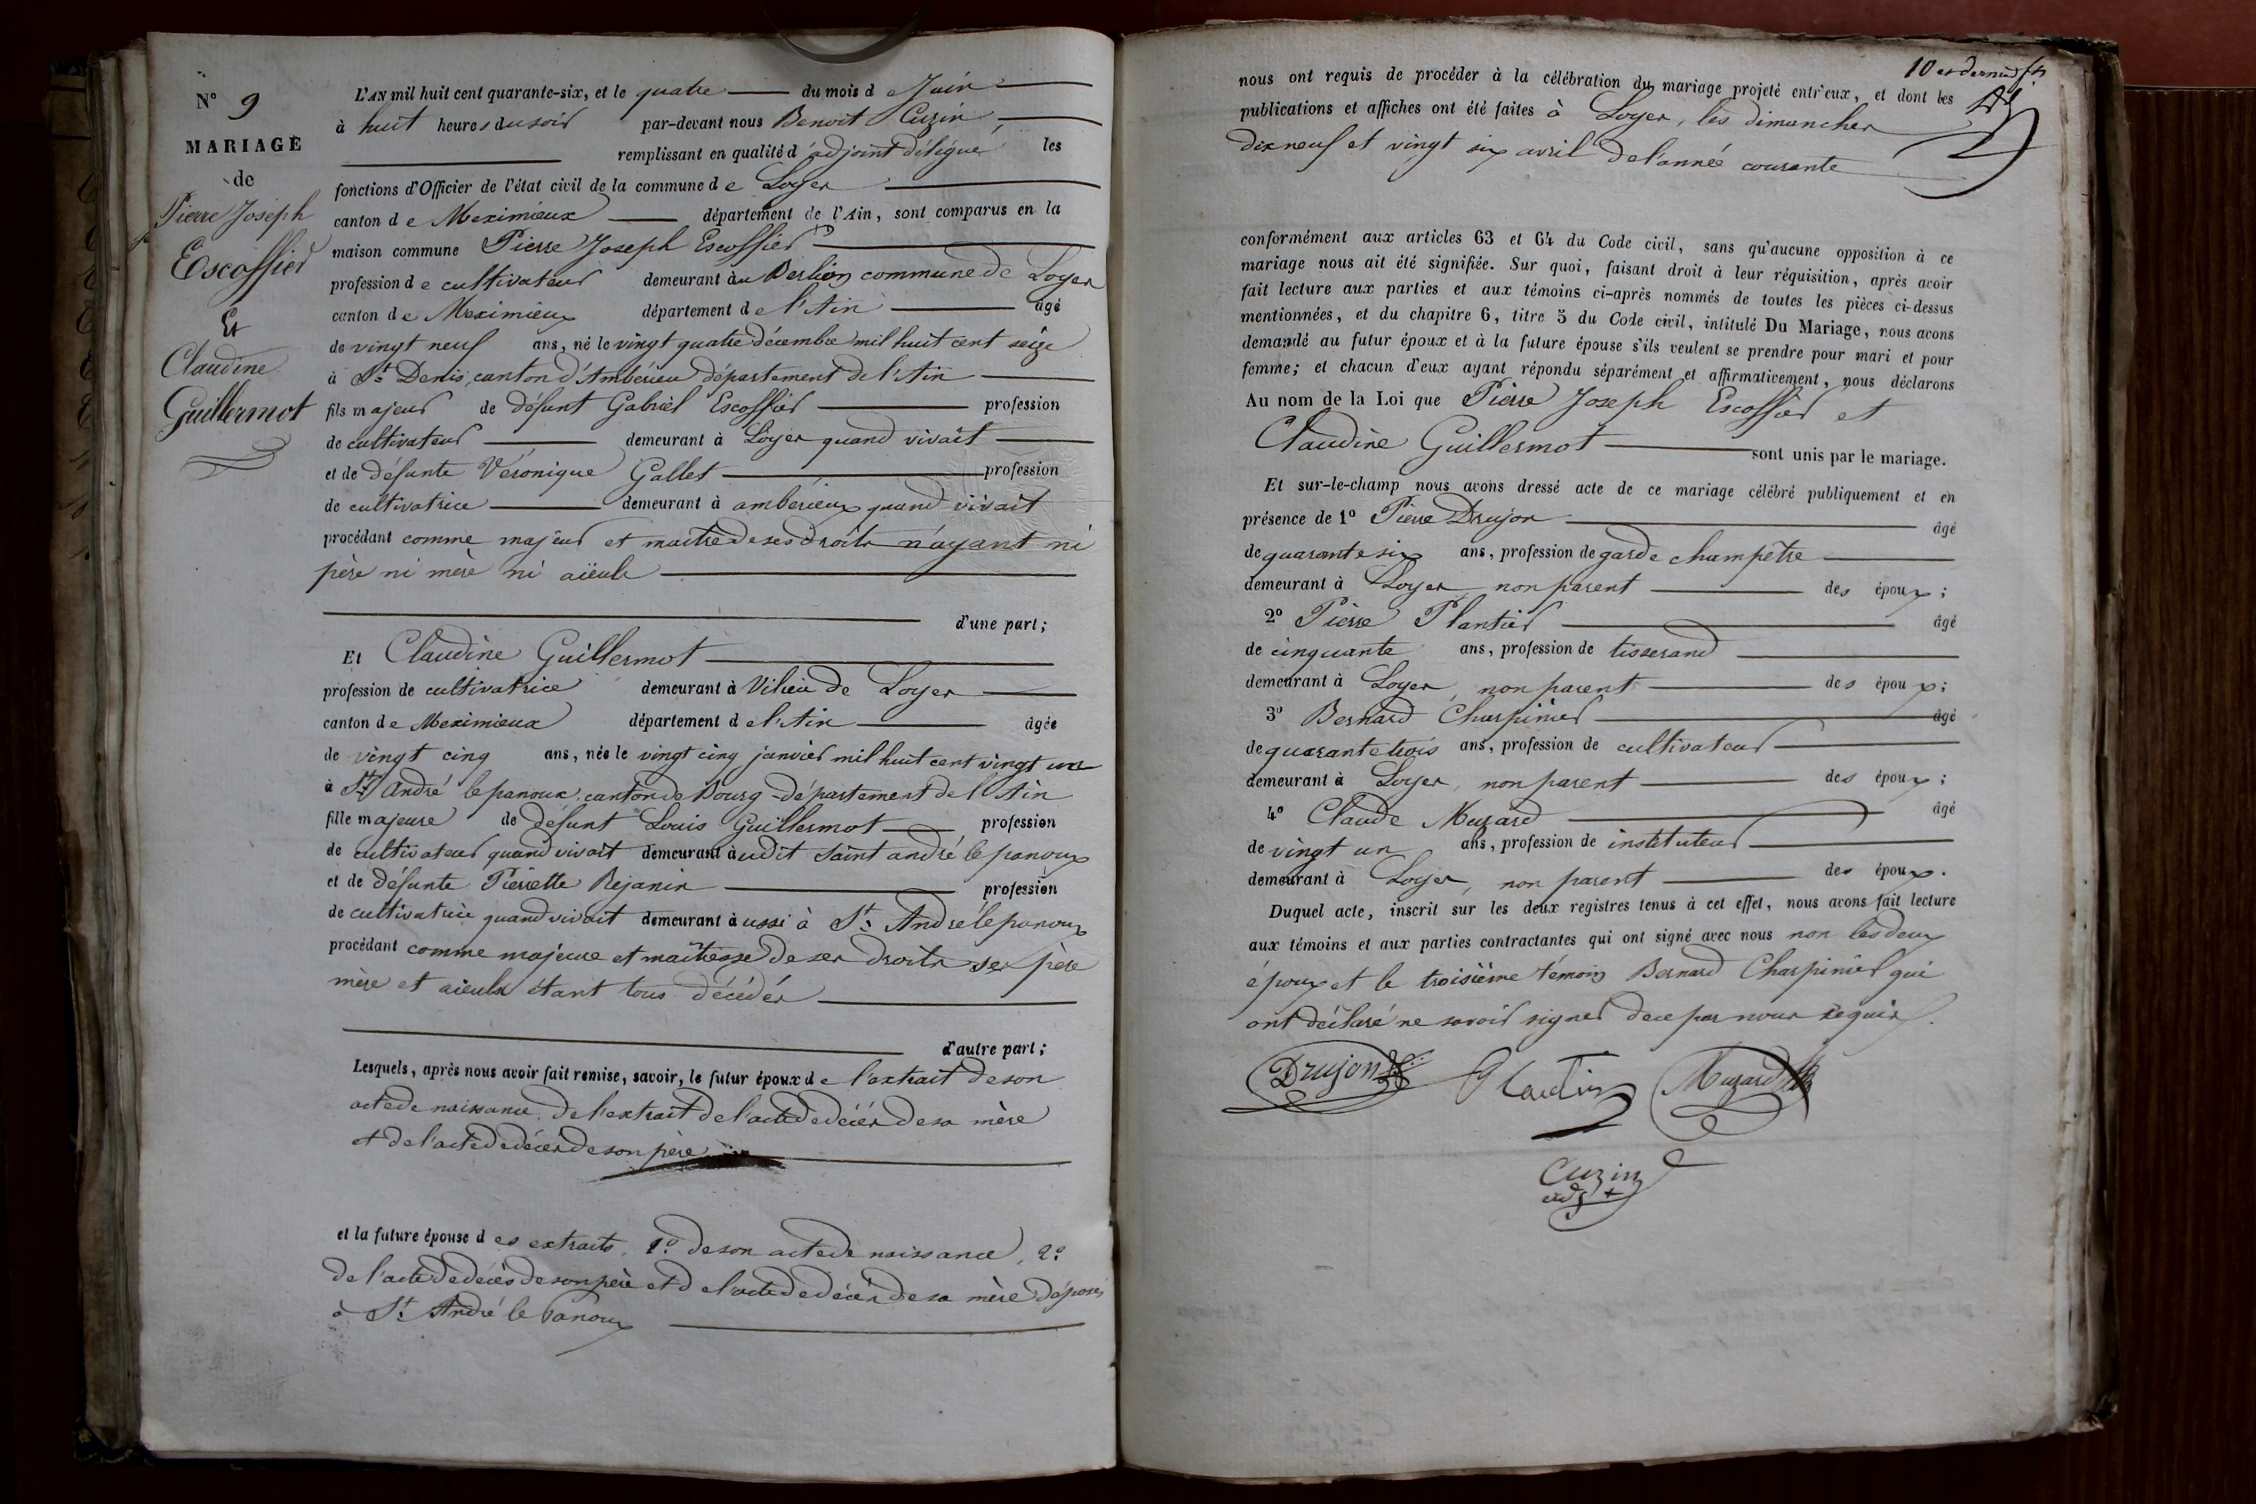 N° 9
MARIAGE
de
Pierre Joseph
Escoffier
Et
Claudine
Guillermot
L'AN mil huit cent quarante-six, et le quatre du mois de Juin
à huit heures du soir par-devant nous Benoit Cuzin,
remplissant en qualité d'adjoint délégué les
fonctions d'Officier de l'état civil de la commune de Loyes
canton de Meximieux département de l'Ain, sont comparus en la
maison commune Pierre Joseph Escoffier
profession de cultivateur demeurant au commune de Loyes
canton de Meximieux département de l'Ain âgé
de vingt neuf ans, né le vingt quatre décembre mil huit cent seize
à St Denis, canton d'Ambérieu département de l'Ain
fils majeur de défunt Gabriel Escoffier profession
de cultivateur demeurant à Loyes quand vivait
et de défunte Véronique Gallet profession
de cultivatrice demeurant à ambérieux quand vivait
procédant comme majeur et maître de ses droits n'ayant ni
père ni mère ni aïeuls
d'une part;
Et Claudine Guillermot
profession de cultivatrice demeurant à Vilieu de Loyes
canton de Meximieux département de l'Ain âgée
de vingt cinq ans, née le vingt cinq janvier mil huit cent vingt un
à St André le panoux, canton de Bourg département de l'Ain
fille majeure de défunt Louis Guillermot profession
de cultivateur quand vivait demeurant audit saint andré le panoux
et de défunte Pierrette Rejanin profession
de cultivatrice quand vivait demeurant aussi à St André le panoux
procédant comme majeure et maîtresse de ses droits ses père
mère et aïeuls étant tous décédés
d'autre part;
Lesquels, après nous avoir fait remise, savoir, le futur époux de l'extrait de son
acte de naissance, de l'extrait de l'acte de décès de sa mère
et de l'acte de décès de son père
et la future épouse des extraits, 1° de son acte de naissance, 2°
de l'acte de décès de son père et de l'acte de décès de sa mère déposés
à St André le Panoux
10 et dernier ft
nous ont requis de procéder à la célébration du mariage projeté entr'eux, et dont les
publications et affiches ont été faites à Loyes, les dimanches
dix neuf et vingt six avril de l'année courante
conformément aux articles 63 et 64 du Code civil, sans qu'aucune opposition à ce
mariage nous ait été signifiée. Sur quoi, faisant droit à leur réquisition, après avoir
fait lecture aux parties et aux témoins ci-après nommés de toutes les pièces ci-dessus
mentionnées, et du chapitre 6, titre 5 du Code civil, intitulé Du Mariage, nous avons
demandé au futur époux et à la future épouse s'ils veulent se prendre pour mari et pour
femme; et chacun d'eux ayant répondu séparément et affirmativement, nous déclarons
Au nom de la Loi que Pierre Joseph Escoffier et
Claudine Guillermot sont unis par le mariage.
Et sur-le-champ nous avons dressé acte de ce mariage célébré publiquement et en
présence de 1° Pierre Drujon âgé
de quarante six ans, profession de garde champêtre
demeurant à Loyes non parent des époux;
2° Pierre Plantier âgé
de cinquante ans, profession de tisserand
demeurant à Loyes, non parent des époux;
3° Bernard Charpinier âgé
de quarante trois ans, profession de cultivateur
demeurant à Loyes, non parent des époux;
4° Claude Muzard âgé
de vingt un ans, profession de instituteur
demeurant à Loyes, non parent des époux.
Duquel acte, inscrit sur les deux registres tenus à cet effet, nous avons fait lecture
aux témoins et aux parties contractantes qui ont signé avec nous non les deux
époux et le troisième témoin Bernard Charpinier qui
ont déclaré ne savoir signer de ce par nous requis.
Drujon
Muzard
Cuzin
adjt